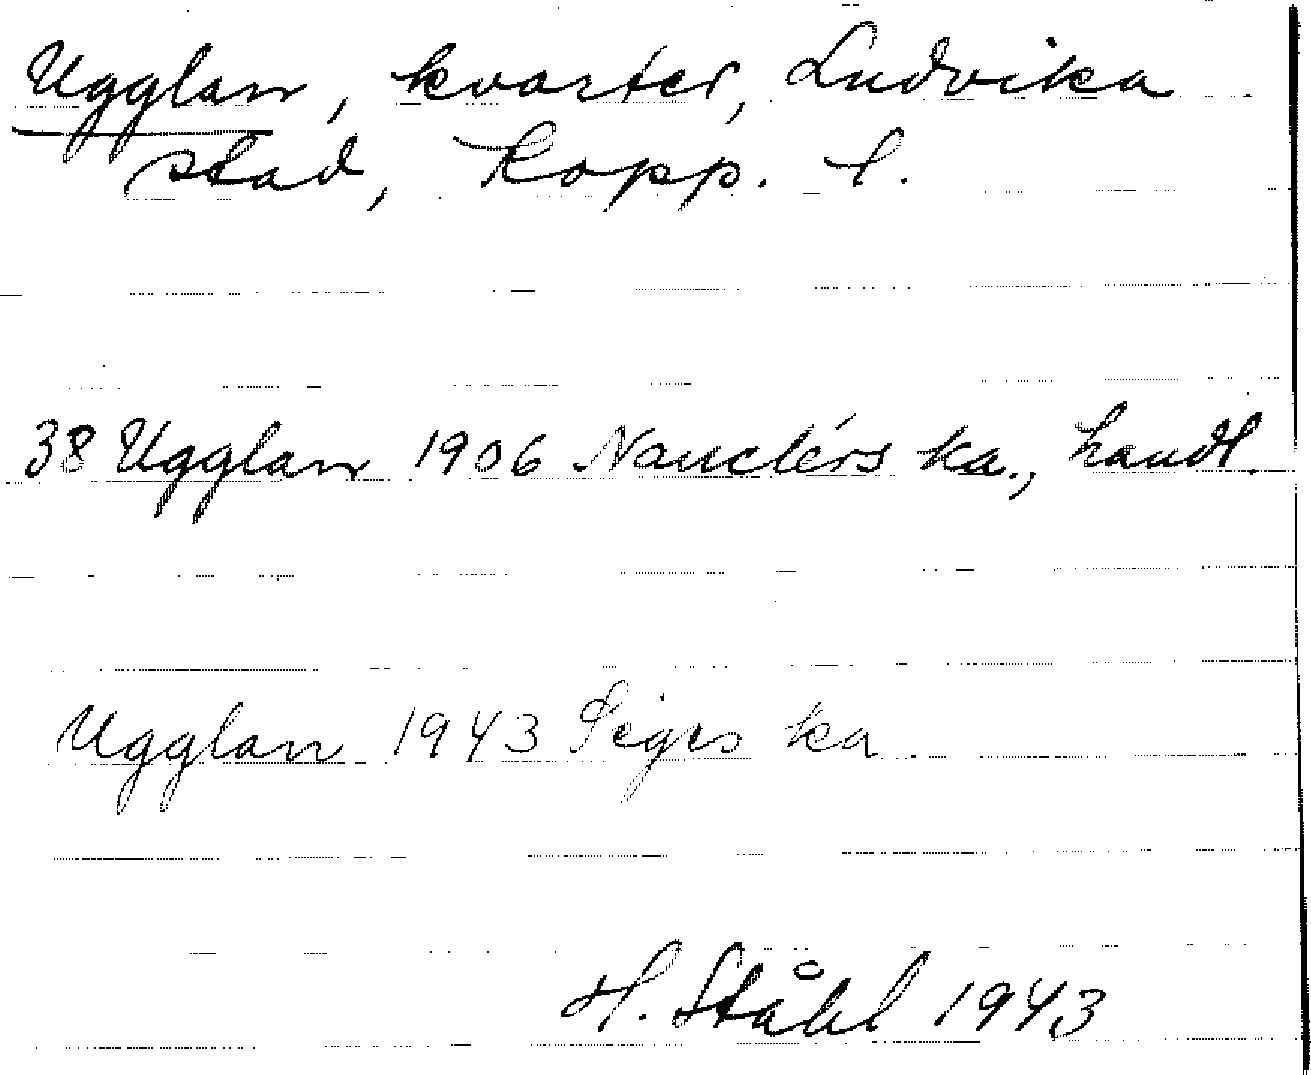 Ugglan, kvarter, Ludvika
stad, Kopp. l.
38 Ugglan 1906 Nauclérs ka., handl.
Ugglan 1943 Seges ka
H. Ståhl 1943